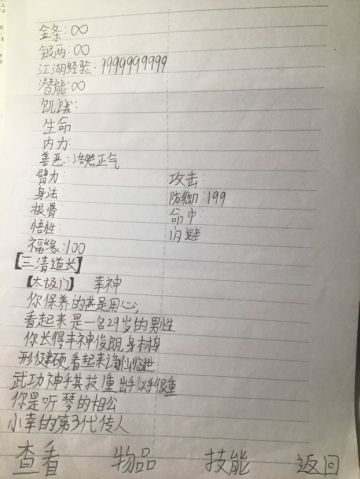 金条:∞
银两:∞
江湖经验:9999999999
潜能:∞
饥饿:
生命
内力:
善恶:浩然正气
臂力: 攻击:
身法: 防御:199
根骨: 命中:
悟性: 闪避
福缘:100
【三清道长】
【太极门】 幸神
你保养的甚是用心,
看起来是一名29岁的男性
你长得丰神俊朗,身材
形健硕,看起来谪仙临世
武功神乎其技,重出手似乎很重
你是听琴的相公
小幸的第3代传人
查看 物品 技能 返回